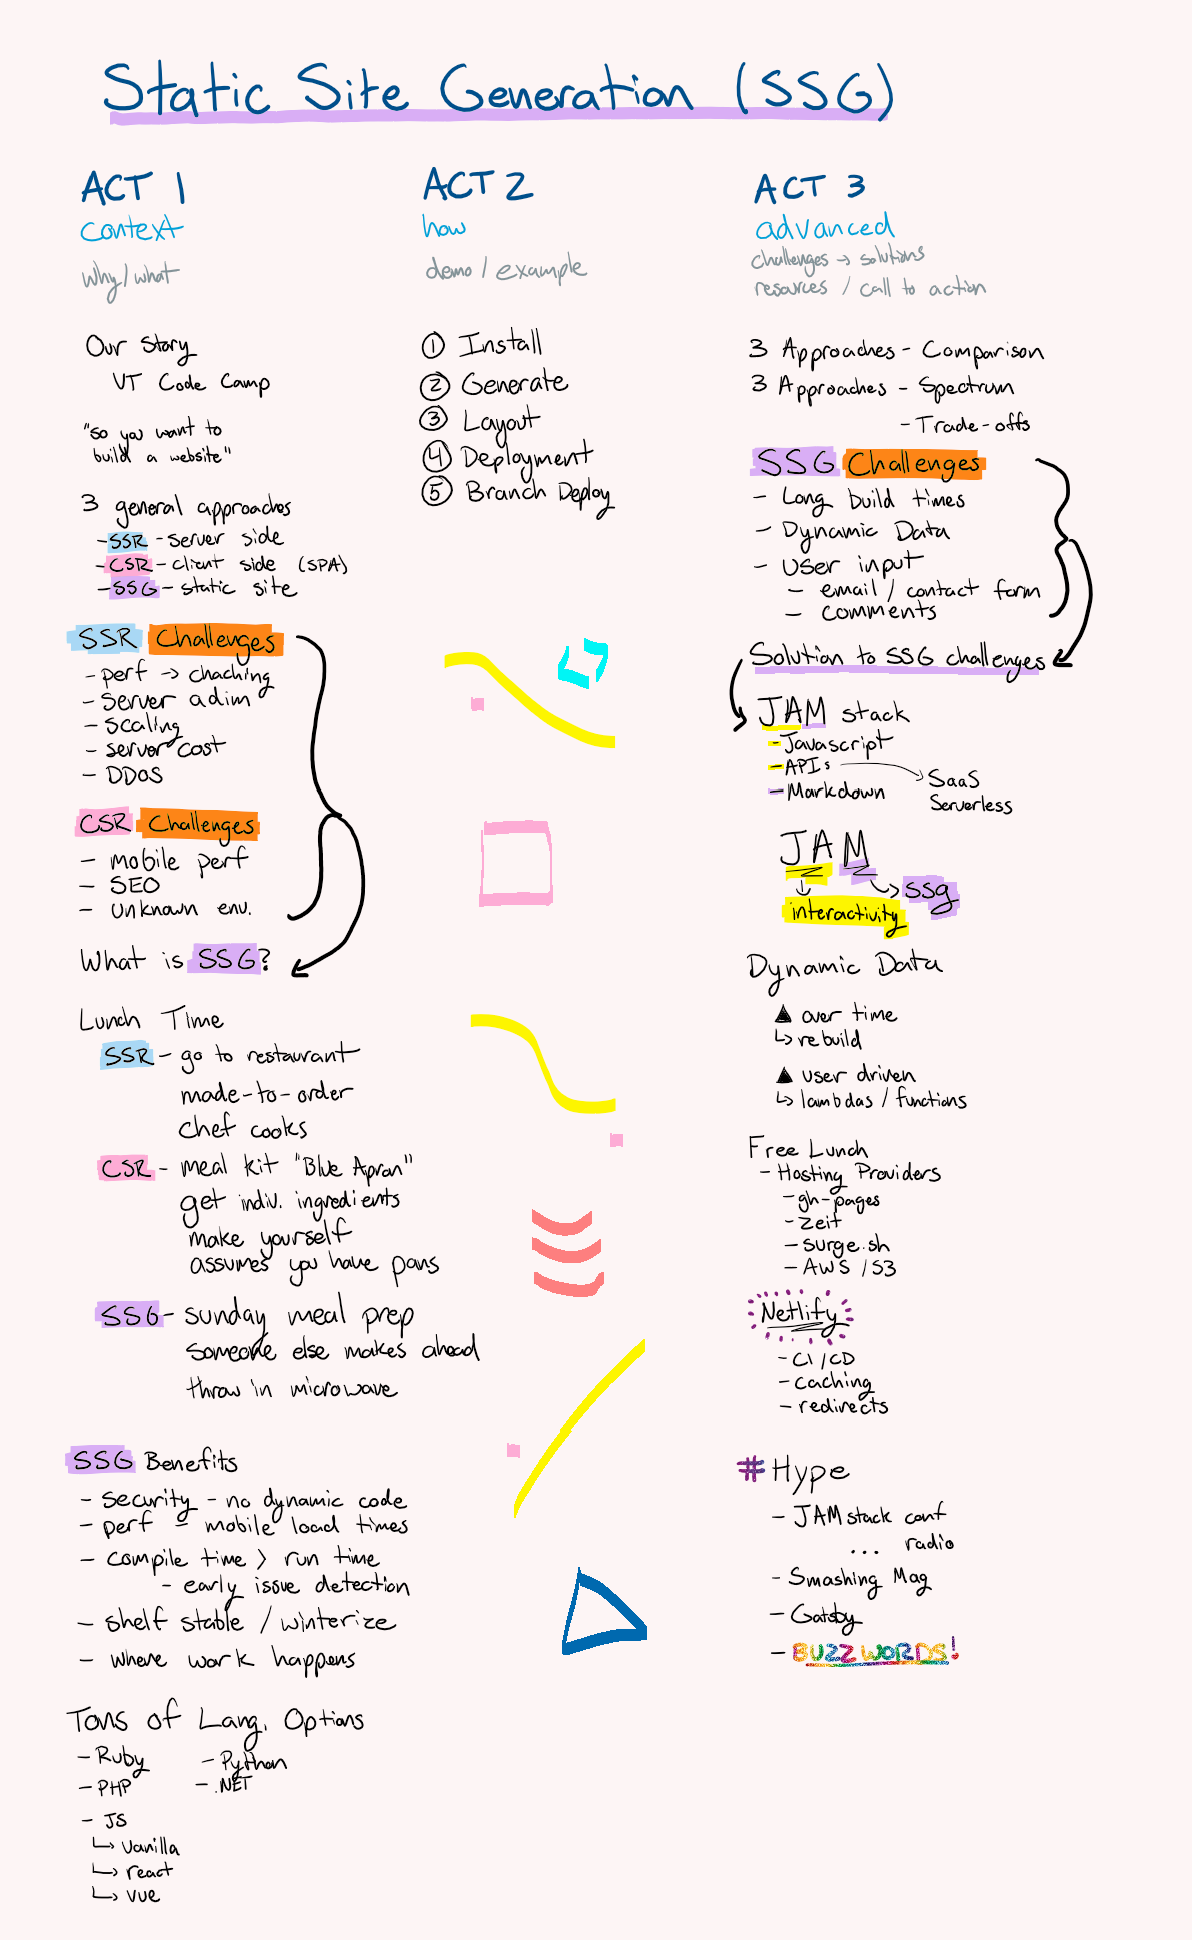 Static Site Generation (SSG)
ACT 1
context
why/what
Our Story
VT Code Camp
"so you want to
build a website"
3 general approaches
- SSR - server side
- CSR - client side (SPA)
- SSG - static site
SSR Challenges
- perf → chaching
- server adim
- scaling
- server cost
- DDOS
CSR Challenges
- mobile perf
- SEO
- unknown env.
What is SSG?
Lunch Time
SSR - go to restaurant
made-to-order
chef cooks
CSR - meal kit "Blue Apron"
get indiv. ingredients
make yourself
assumes you have pans
SSG - sunday meal prep
someone else makes ahead
throw in microwave
SSG Benefits
- security - no dynamic code
- perf - mobile load times
- compile time > run time
- early issue detection
- shelf stable / winterize
- where work happens
Tons of Lang. Options
- Ruby
- PHP
- JS
↳ vanilla
↳ react
↳ vue
- Python
- .NET
ACT 2
how
demo / example
① Install
② Generate
③ Layout
④ Deployment
⑤ Branch Deploy
ACT 3
advanced
challenges → solutions
resources / call to action
3 Approaches - Comparison
3 Approaches - Spectrum
- Trade-offs
SSG Challenges
- Long build times
- Dynamic Data
- user input
- email / contact form
- comments
Solution to SSG challenges
JAM stack
- Javascript
- APIs → SaaS
Serverless
- Markdown
JAM
→ ssg
interactivity
Dynamic Data
▲ over time
↳ rebuild
▲ user driven
↳ lambdas / functions
Free Lunch
- Hosting Providers
- gh-pages
- Zeit
- surge.sh
- AWS / S3
Netlify
- CI / CD
- caching
- redirects
# Hype
- JAM stack conf
... radio
- Smashing Mag
- Gatsby
- BUZZ WORDS!